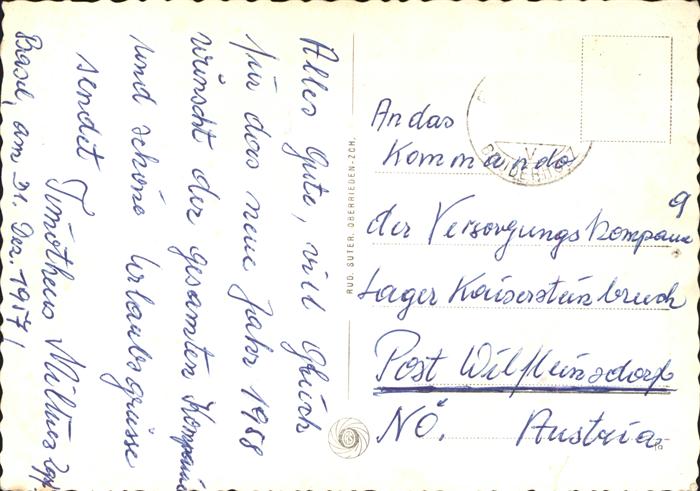 Alles Gute, vill Glück
für das neue Jahr 1958
wünscht der gesamten Kompanie
und schöne Urlaubsgrüsse
sendet
Timotheus
Basel, am 31. Dez. 1957!
RUD. SUTER, OBERRIEDEN-ZCH.
An das
Kommando
der Versorgungskompanie
Lager Kaisersteinbruch
Post Wilfleinsdorf
NÖ. Austria